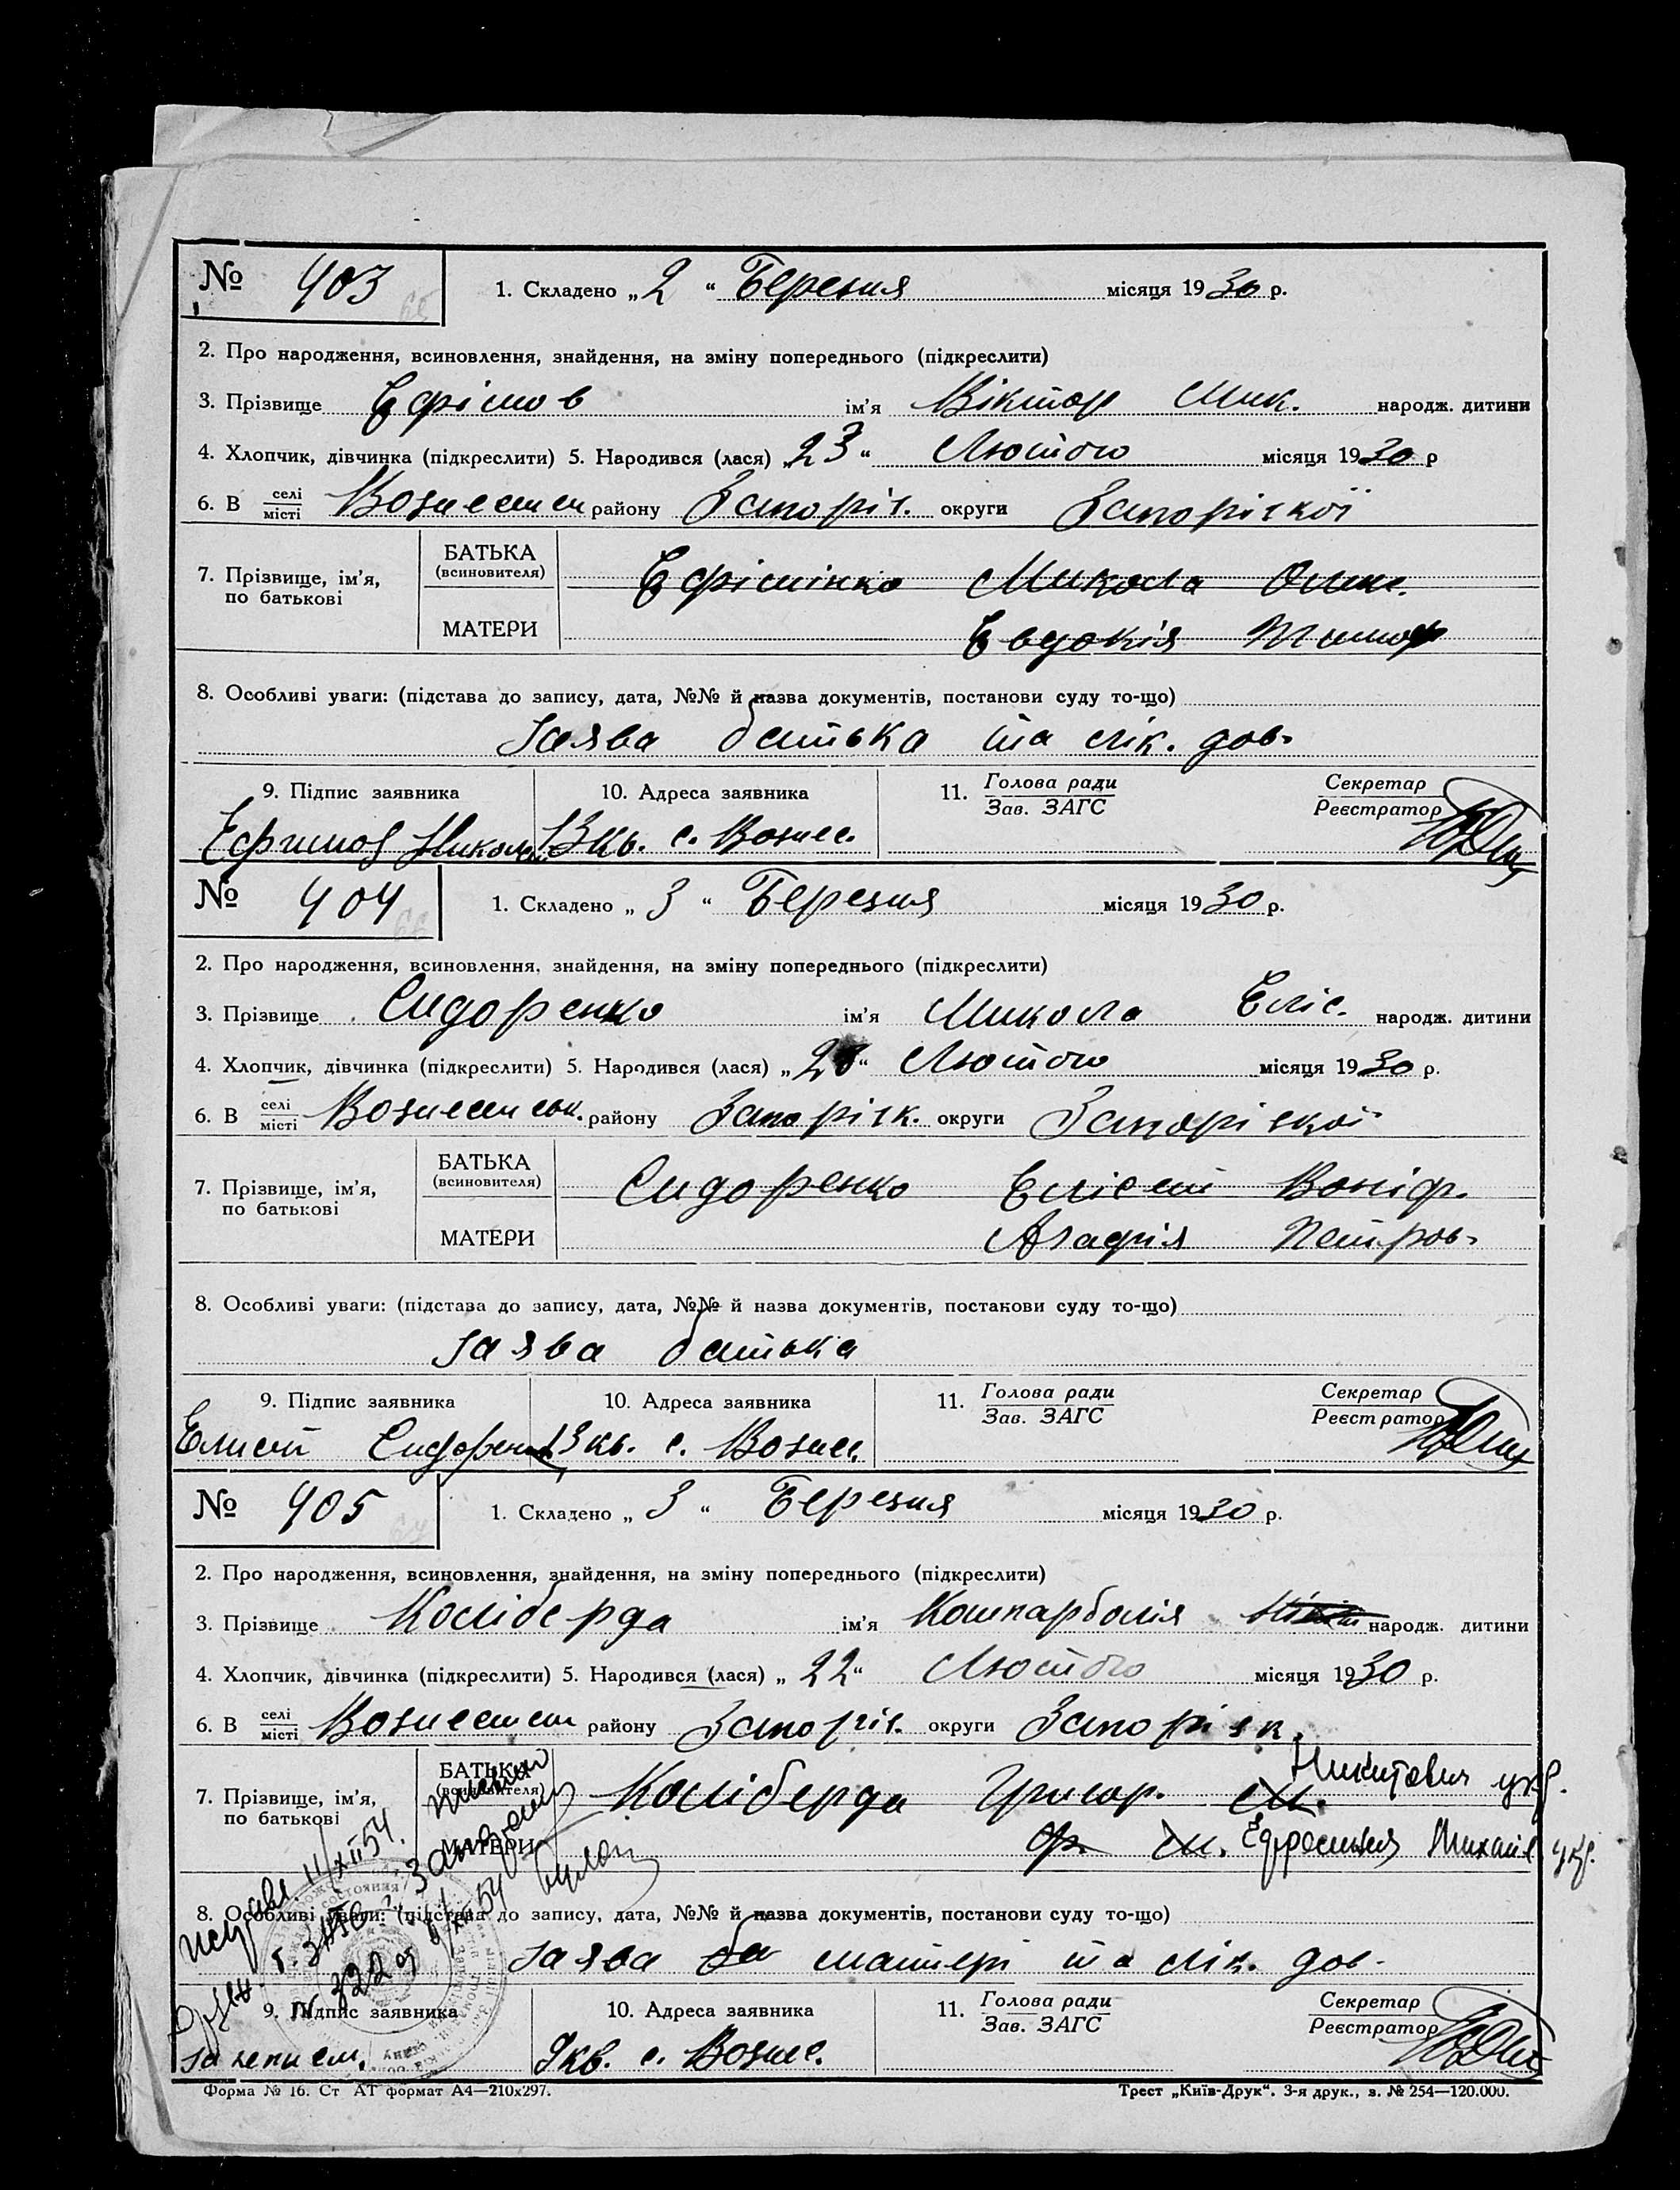 № 403 1. Складено „2“ Березня місяця 1930 р.
2. Про народження, всиновлення, знайдення, на зміну попереднього (підкреслити)
3. Прізвище Єфімов ім'я Віктор Мик. народж. дитини
4. Хлопчик, дівчинка (підкреслити) 5. Народився (лася) „23“ Лютого місяця 1930 р
6. В селі/місті району Запоріз. округи Запорізкої
7. Прізвище, ім'я, по батькові
БАТЬКА (всиновителя) Єфімінко Микола
МАТЕРИ Євдокія Тимоф
8. Особливі уваги: (підстава до запису, дата, №№ й назва документів, постанови суду то-що)
заява батька та лік. дов.
9. Підпис заявника 10. Адреса заявника 11. Голова ради/Зав. ЗАГС Секретар/Реєстратор
Ефимов Никол 13 кв. с. Вознес.
№ 404 1. Складено „3“ Березня місяця 1930 р.
2. Про народження, всиновлення, знайдення, на зміну попереднього (підкреслити)
3. Прізвище Сидоренко ім'я Микола Єліс. народж. дитини
4. Хлопчик, дівчинка (підкреслити) 5. Народився (лася) „2 “ Лютого місяця 1930 р.
6. В селі/місті Вознесенськ. району Запорізк. округи Запорізкої
7. Прізвище, ім'я, по батькові
БАТЬКА (всиновителя) Сидоренко Єлісей Воніф.
МАТЕРИ Агафія Петров.
8. Особливі уваги: (підстава до запису, дата, №№ й назва документів, постанови суду то-що)
заява батька
9. Підпис заявника 10. Адреса заявника 11. Голова ради/Зав. ЗАГС Секретар/Реєстратор
Елисей Сидоренк 13 кв. с. Вознес.
№ 405 1. Складено „3“ Березня місяця 1930 р.
2. Про народження, всиновлення, знайдення, на зміну попереднього (підкреслити)
3. Прізвище Коліберда ім'я народж. дитини
4. Хлопчик, дівчинка (підкреслити) 5. Народився (лася) „22“ Лютого місяця 1930 р.
6. В селі/місті району Запоріз. округи Запорізк.
7. Прізвище, ім'я, по батькові
БАТЬКА (всиновителя) Коліберда Григор. М. Никитович укр.
МАТЕРИ Ф. М. Ефросиния Михайл. укр.
исправл. 11/XII 54.
8. Особливі уваги: (підстава до запису, дата, №№ й назва документів, постанови суду то-що)
№ 322 от
заява матері та лік. дов.
9. Підпис заявника 10. Адреса заявника 11. Голова ради/Зав. ЗАГС Секретар/Реєстратор
9 кв. с. Вознес.
Форма № 16. Ст АТ формат А4—210х297. Трест „Київ-Друк“. 3-я друк., з. № 254—120.000.